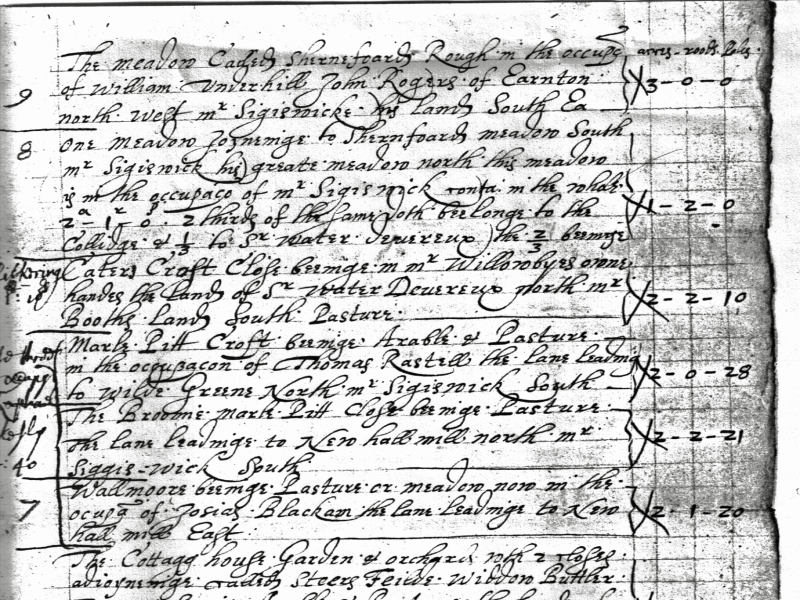 The meadow Called Shernefoard Rough in the occupa acres - roods - Poles
of William Underhill John Rogers of Earnton 3 - 0 - 0
9
north West mr Sigiswicke his land South Ea
8 One meadow Joyneinge to Shernfoard meadow South
mr Sigiswick his greate meadow north this meadow
is in the occupaco of mr Sigiswick conta in the whole 1 - 2 - 0
2a - 1r - 0p 2 thirds of the same doth beelonge to the
Collidge & 1/3 to Sr Water Devereux the 2/3 beeinge
Caters Croft Close beeinge in mr Willowbyes owne
handes the Land of Sr Water Devereux north mr 2 - 2 - 10
Booths land South Pasture
Marle Pitt Croft beeinge Arable & Pasture
in the occupacon of Thomas Rastell the lane leading 2 - 0 - 28
to Wilde Greene North mr Sigiswick South
The Broome marle Pitt Close beeinge Pasture
the lane leadinge to New hall mill north mr 2 - 2 - 21
40 Siggis-wick South
7 Wallmoore beeinge Pasture or meadow now in the
occupa of Josias Blackam the lane leadinge to New 2 - 1 - 20
hall mill East
The Cottage house Garden & orchard wth 2 closes
adioyneinge called Steers Feilde Widdow Buttler